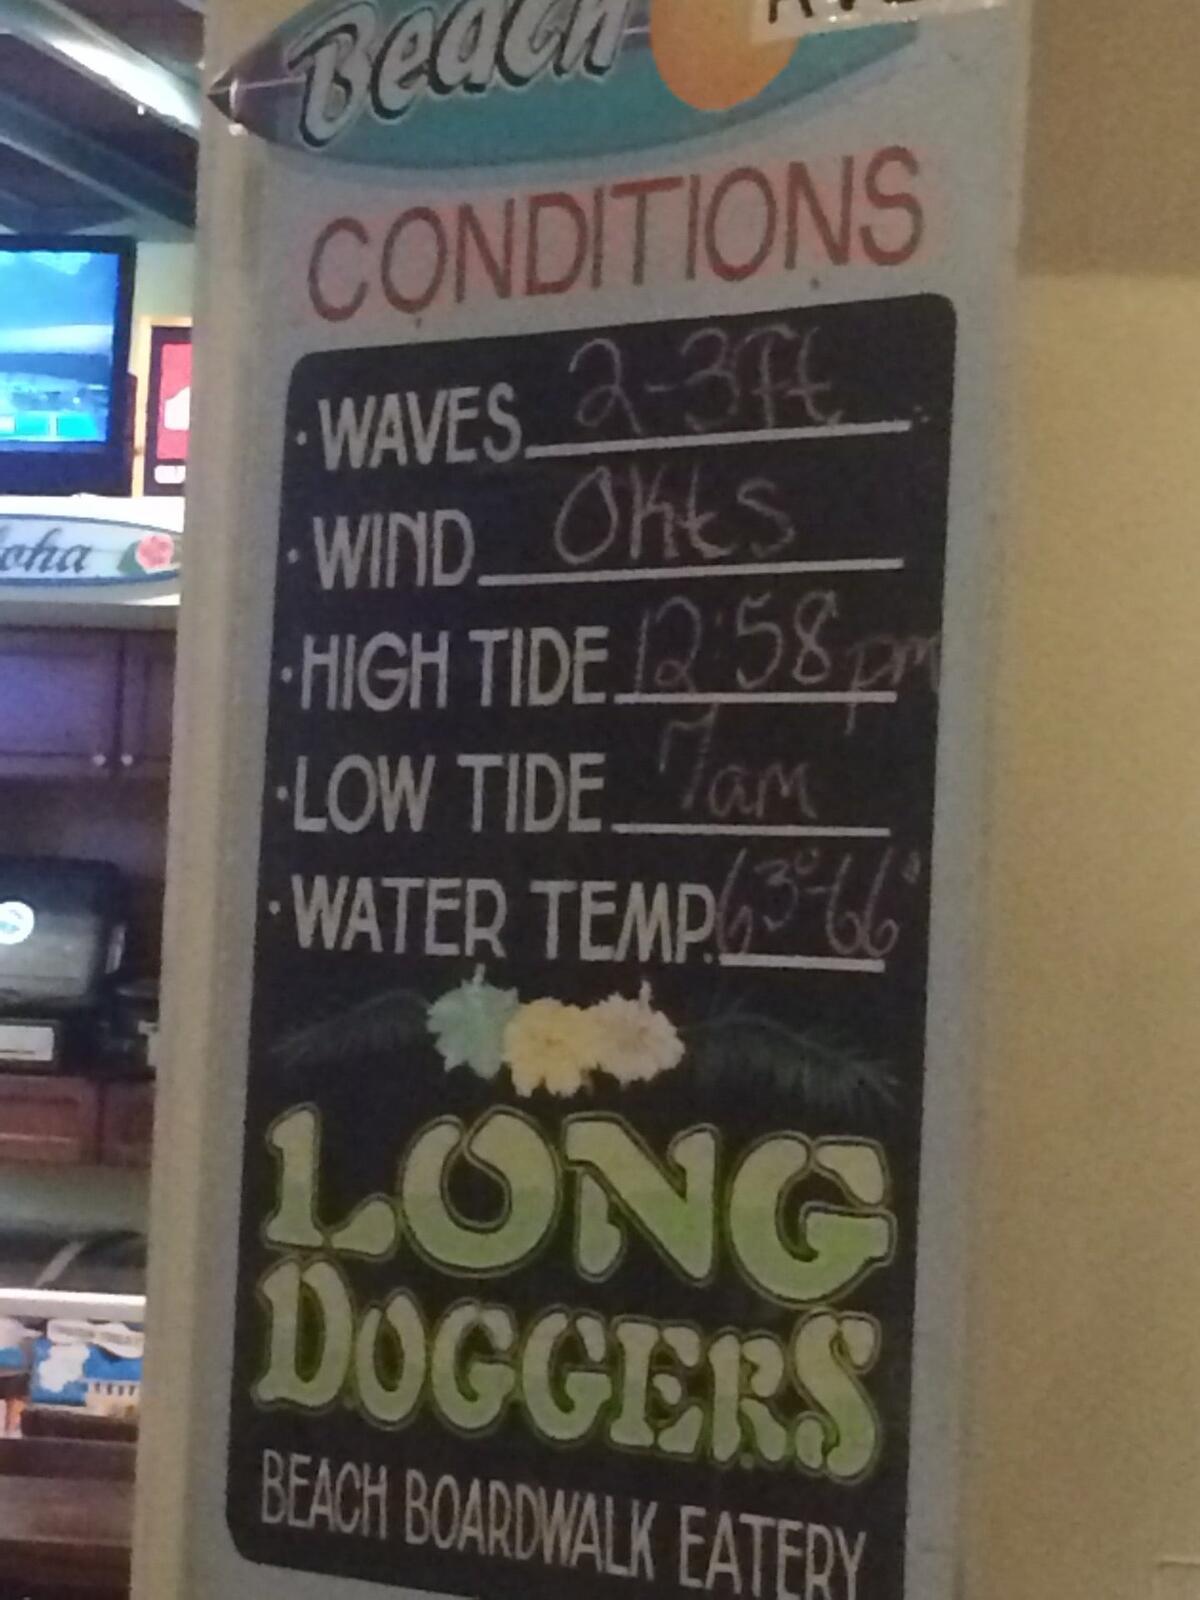 Beach
CONDITIONS
· WAVES 2-3ft
· WIND 0Kts
· HIGH TIDE 12:58pm
· LOW TIDE 7am
· WATER TEMP. 63°-66°
LONG
DOGGERS
BEACH BOARDWALK EATERY
oha